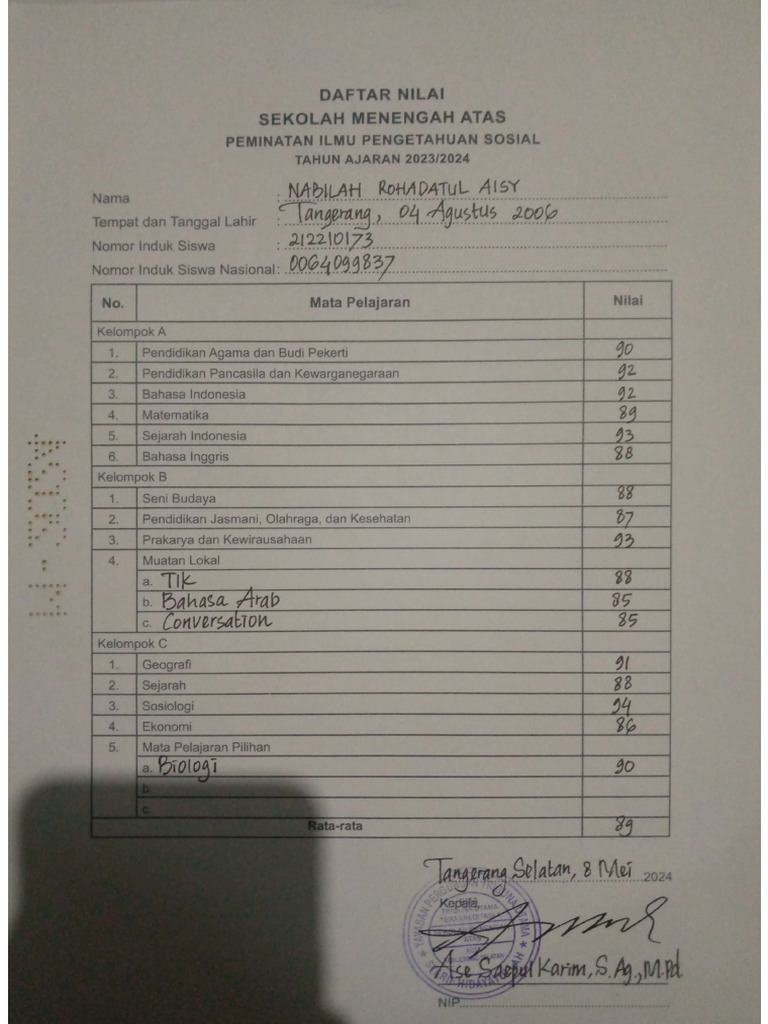 DAFTAR NILAI
SEKOLAH MENENGAH ATAS
PEMINATAN ILMU PENGETAHUAN SOSIAL
TAHUN AJARAN 2023/2024
Nama : NABILAH ROHADATUL AISY
Tempat dan Tanggal Lahir : Tangerang, 04 Agustus 2006
Nomor Induk Siswa : 212210173
Nomor Induk Siswa Nasional : 0064099837
No. Mata Pelajaran Nilai
Kelompok A
1. Pendidikan Agama dan Budi Pekerti 90
2. Pendidikan Pancasila dan Kewarganegaraan 92
3. Bahasa Indonesia 92
4. Matematika 89
5. Sejarah Indonesia 93
6. Bahasa Inggris 88
Kelompok B
1. Seni Budaya 88
2. Pendidikan Jasmani, Olahraga, dan Kesehatan 87
3. Prakarya dan Kewirausahaan 93
4. Muatan Lokal
a. TIK 88
b. Bahasa Arab 85
c. Conversation 85
Kelompok C
1. Geografi 91
2. Sejarah 88
3. Sosiologi 94
4. Ekonomi 86
5. Mata Pelajaran Pilihan
a. Biologi 90
b.
c.
Rata-rata 89
Tangerang Selatan, 8 Mei 2024
Kepala,
Ase Saepul Karim, S.Ag., M.Pd
NIP.